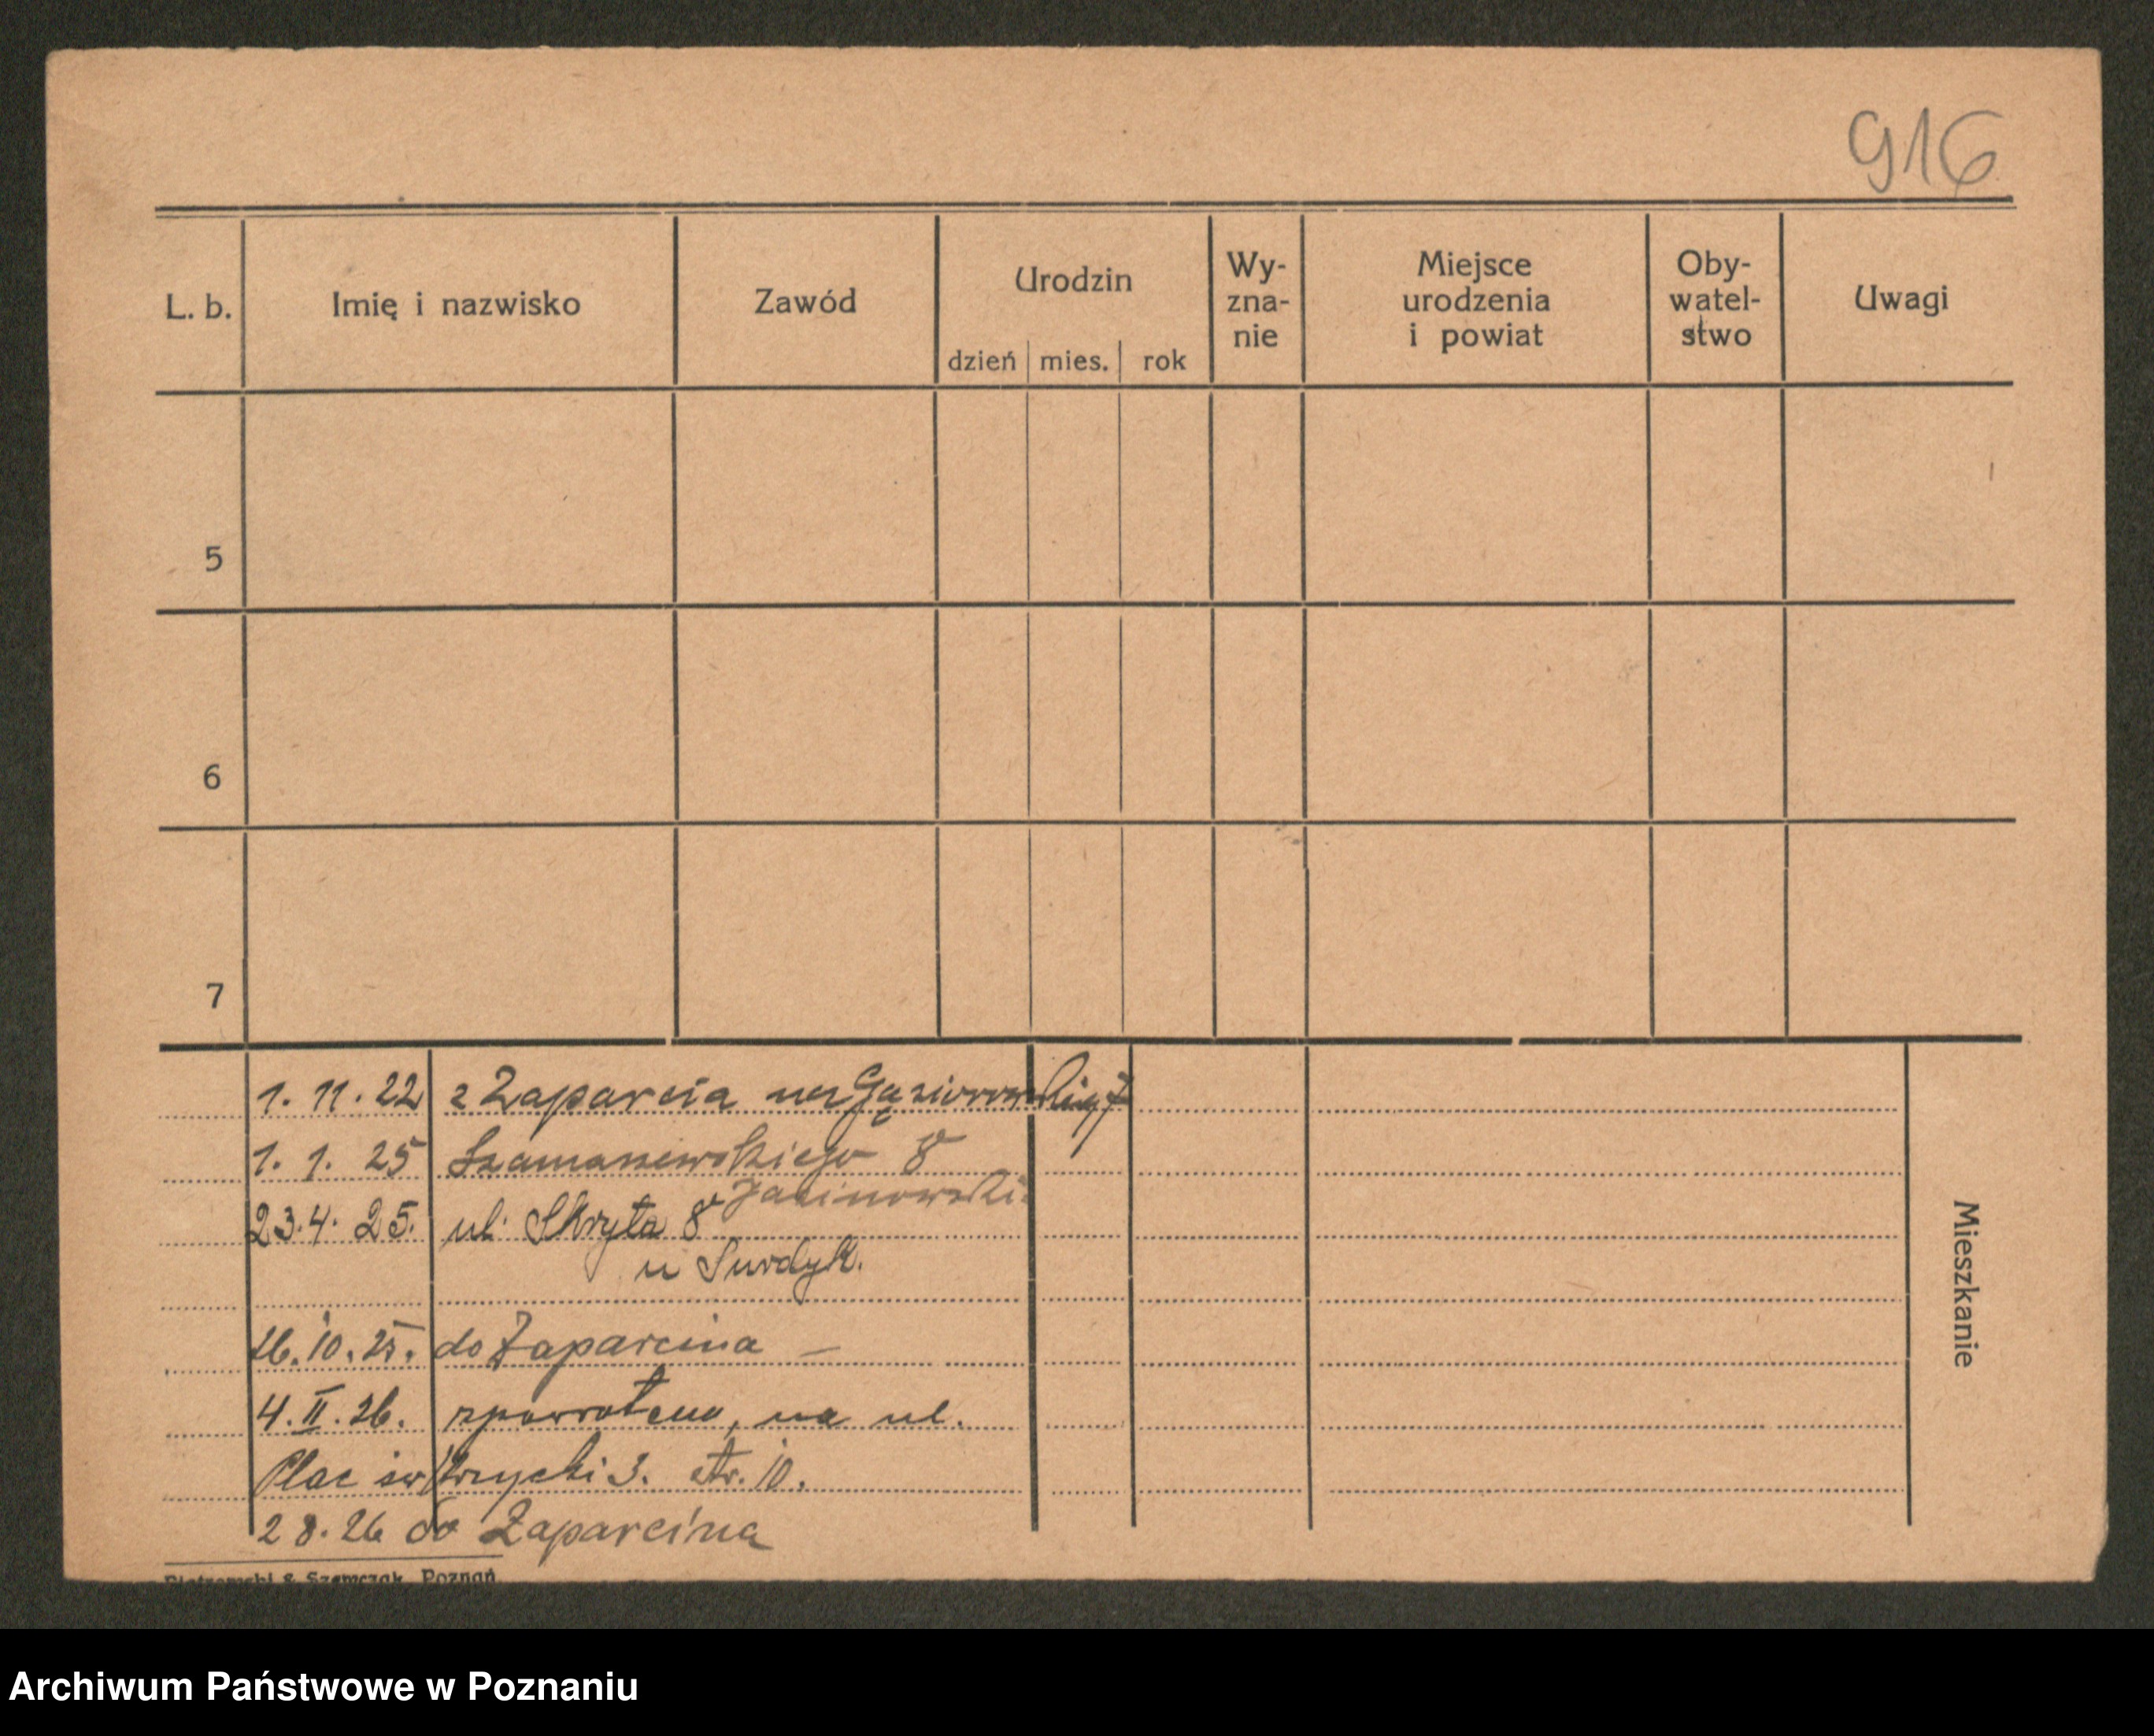 916
L. b.
Imię i nazwisko
Zawód
Urodzin
dzień mies. rok
Wy-
zna-
nie
Miejsce
urodzenia
i powiat
Oby-
watel-
stwo
Uwagi
5
6
7
1. 11. 22 z Zaparcia na Gąsiorowskich 7
1. 1. 25 Szamarzewskiego 8
Jasinowski
23. 4. 25. ul. Skryta 8
u Surdyk.
16. 10. 25. do Zaparcina —
4. II. 26. zpowrotem, na ul.
Plac św. 3. str. 10.
2 8. 26 do Zaparcina
Mieszkanie
Piotrowski & Szewczak, Poznań
Archiwum Państwowe w Poznaniu